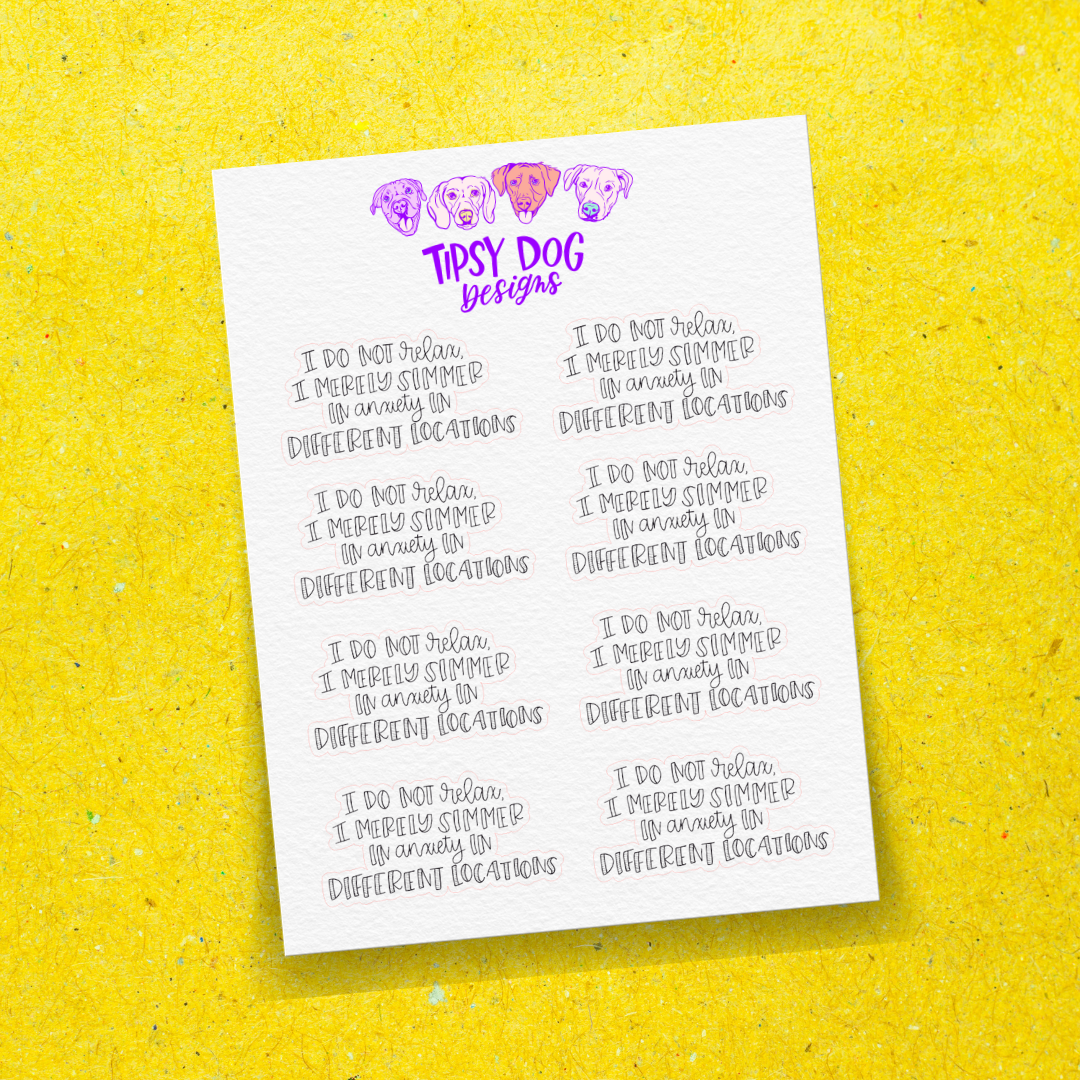 TIPSY DOG
Designs
I DO NOT relax,
I MERELY SIMMER
IN anxiety IN
DIFFERENT LOCATIONS
I DO NOT relax,
I MERELY SIMMER
IN anxiety IN
DIFFERENT LOCATIONS
I DO NOT relax,
I MERELY SIMMER
IN anxiety IN
DIFFERENT LOCATIONS
I DO NOT relax,
I MERELY SIMMER
IN anxiety IN
DIFFERENT LOCATIONS
I DO NOT relax,
I MERELY SIMMER
IN anxiety IN
DIFFERENT LOCATIONS
I DO NOT relax,
I MERELY SIMMER
IN anxiety IN
DIFFERENT LOCATIONS
I DO NOT relax,
I MERELY SIMMER
IN anxiety IN
DIFFERENT LOCATIONS
I DO NOT relax,
I MERELY SIMMER
IN anxiety IN
DIFFERENT LOCATIONS